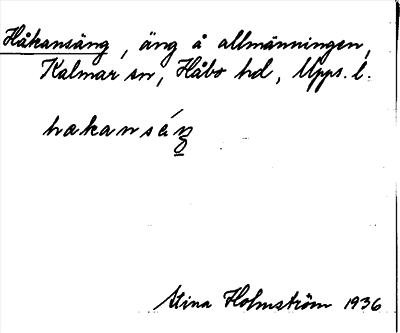 Håkansäng, äng å allmänningen,
Kalmar sn, Håbo hd, Upps. l.
hakansáŋ
Stina Holmström 1936